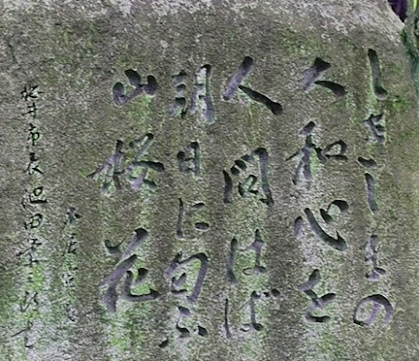 しきしまの
大和心を
人問はば
朝日に匂ふ
山桜花
本居宣長
井市長池田